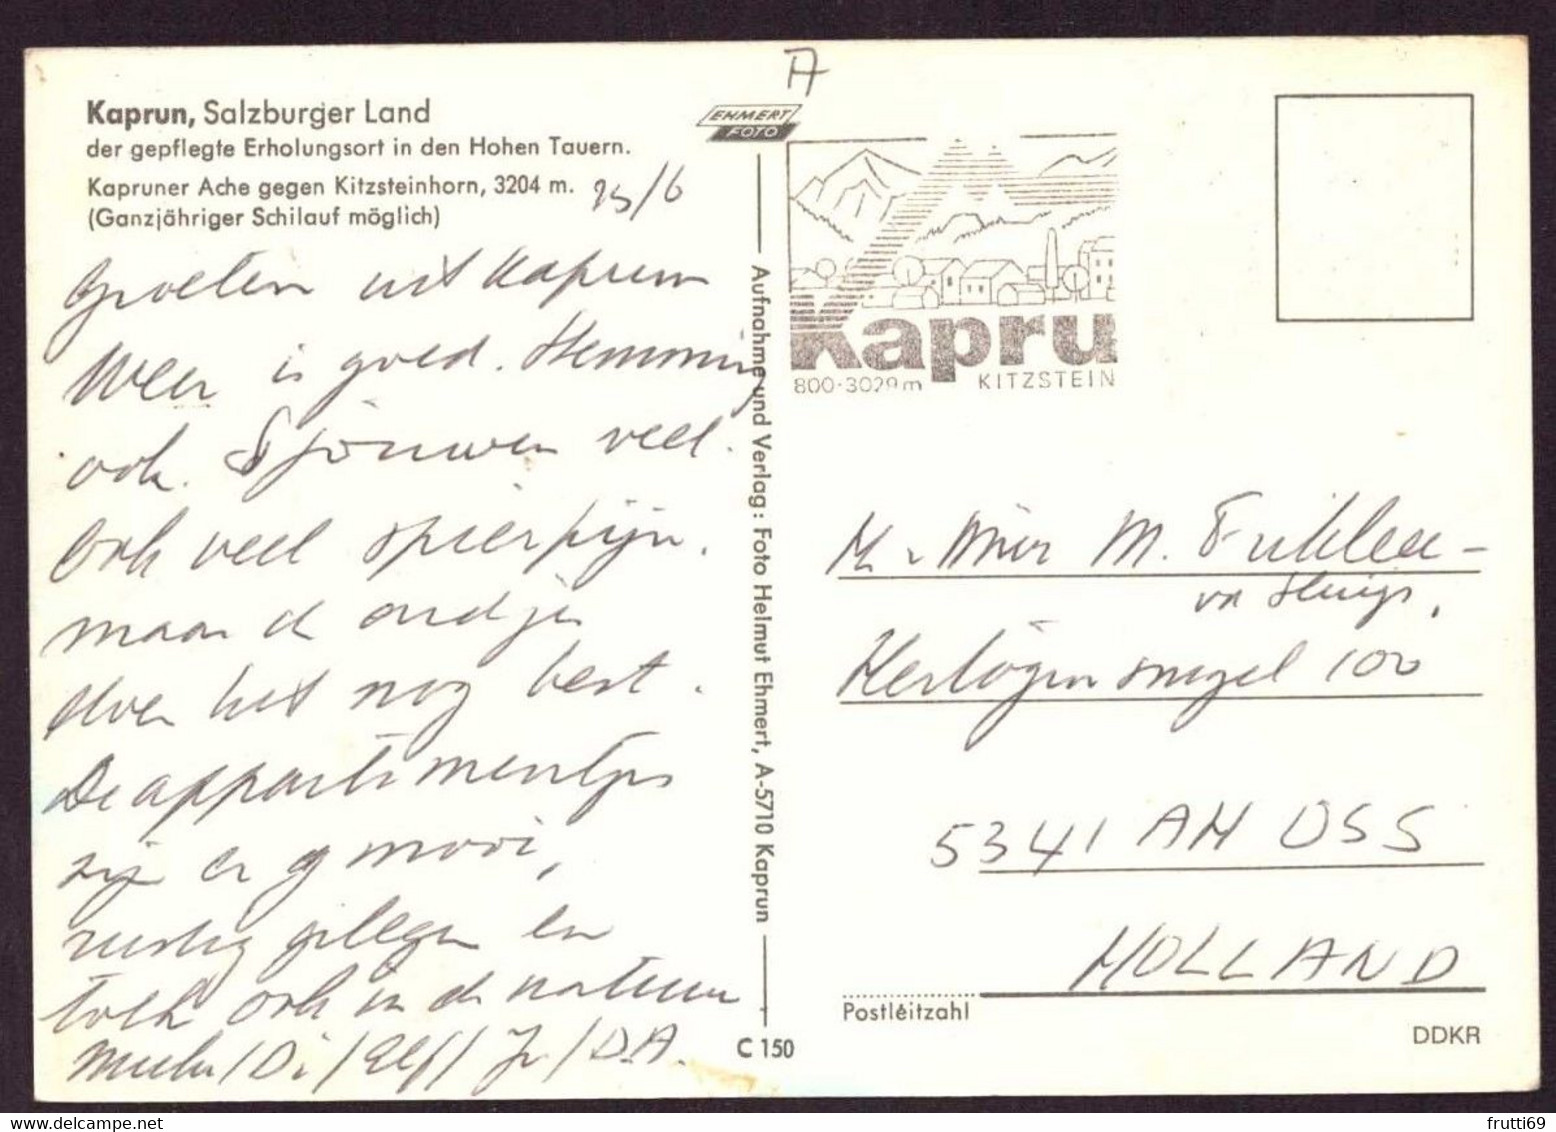 A
Kaprun, Salzburger Land
der gepflegte Erholungsort in den Hohen Tauern.
Kapruner Ache gegen Kitzsteinhorn, 3204 m.
(Ganzjähriger Schilauf möglich)
25/6
Groeten uit Kaprun
Weer is goed. Stemming
ook. Sjouwen veel.
Ook veel spierpijn.
maar de oudjes
doen het nog best.
De appartementjes
zijn erg mooi,
rustig gelegen en
toch ook in de natuur
EHMERT
FOTO
Kapru
800-3029 m KITZSTEIN
Aufnahme und Verlag: Foto Helmut Ehmert, A-5710 Kaprun
C 150
M.
100
5341 AH OSS
HOLLAND
Postleitzahl
DDKR
frutti69